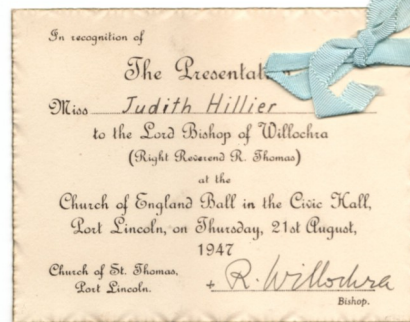 In recognition of
The Presentat
Miss Judith Hillier
to the Lord Bishop of Willochra
(Right Reverend R. Thomas)
at the
Church of England Ball in the Civic Hall,
Port Lincoln, on Thursday, 21st August,
1947
Church of St. Thomas,
Port Lincoln.
+ R. Willochra
Bishop.